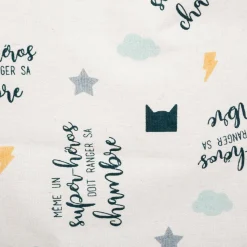 -héros
RANGER SA
chambre
MÊME UN
super-héros
DOIT RANGER SA
chambre
RANGER SA
-héros